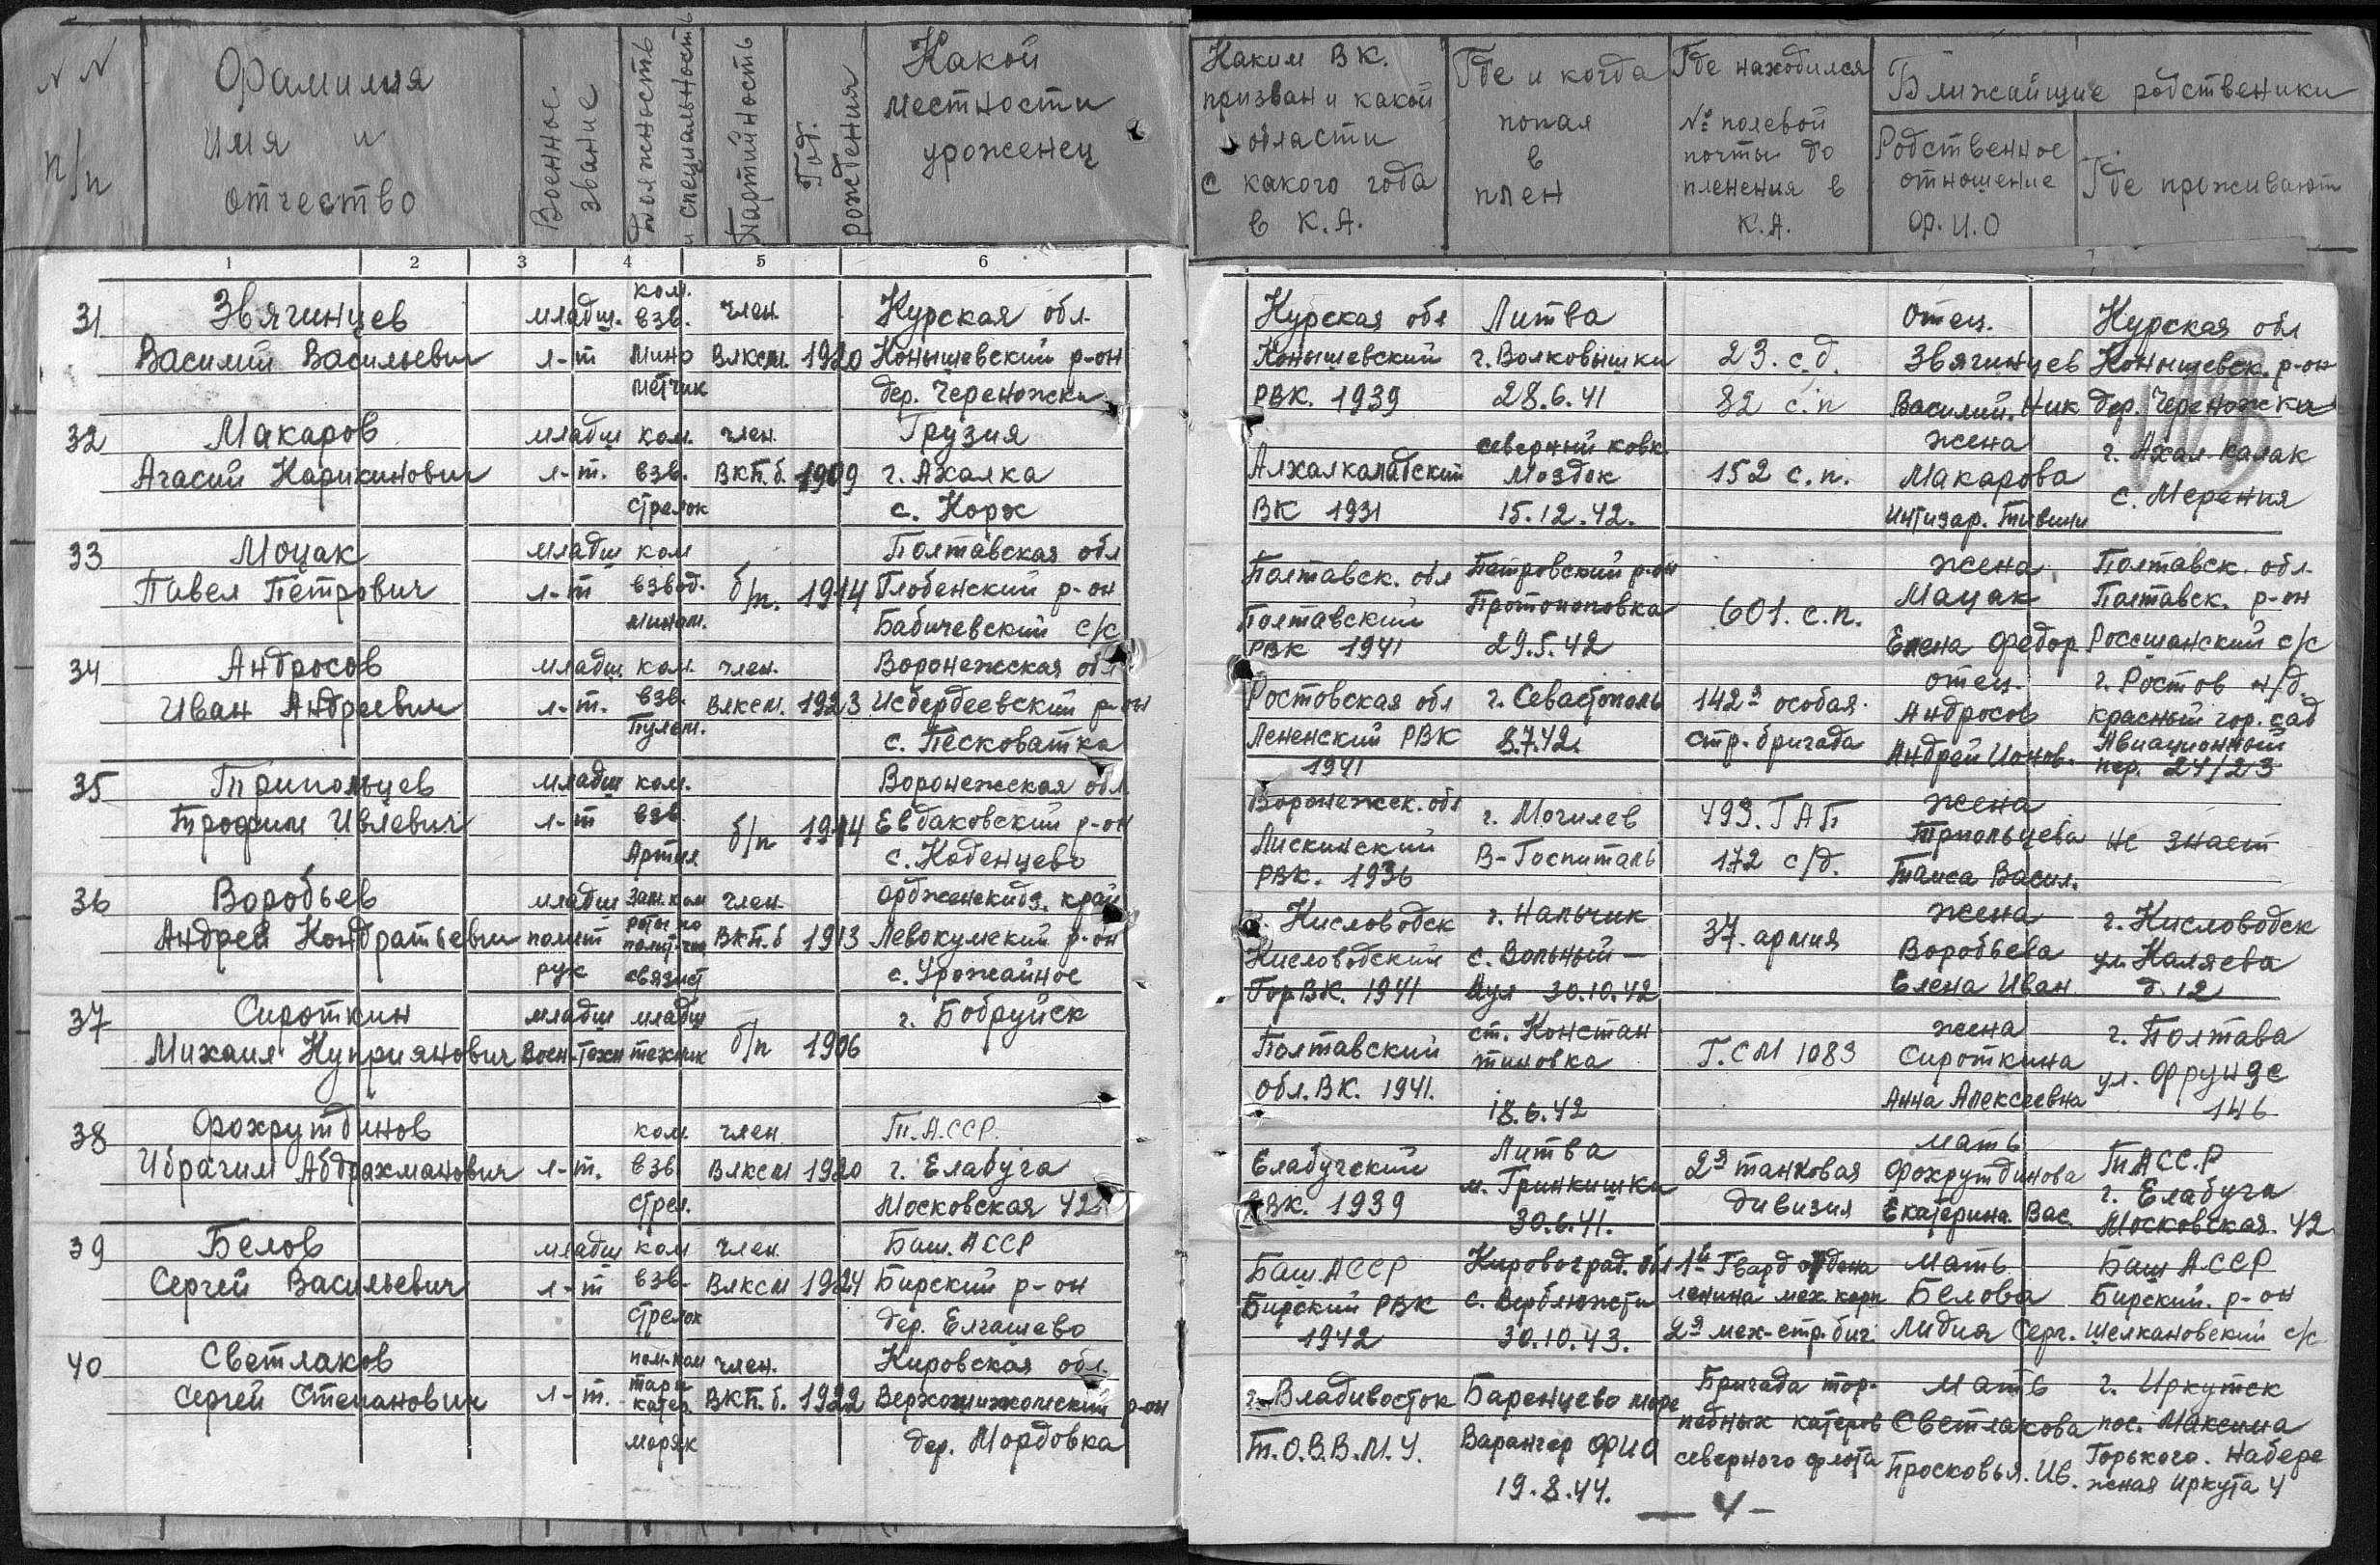 NN
п/п
Фамилия
имя и
отчество
Военное
звание
должность
и специальность
Партийность
Год
рождения
Какой
местности
уроженец
Каким ВК.
призван и какой
области
с какого года
в К.А.
Где и когда
попал
в
плен
Где находился
№ полевой
почты до
пленения в
К.А.
Ближайщие родственики
Родственное
отношение
Ф.И.О
Где проживают
1 2 3 4 5 6
31 Звягинцев младш. ком. взв. член. Курская обл.
Василий Васильевич л-т мино метчик Влксм. 1920 Конышевский р-он
дер. Череножки
Курская обл Литва Отец. Курская обл
Конышевский г. Волковышки 23. с.д. Звягинцев Конышевск. р-он
РВК. 1939 28.6.41 82 с.п Василий. Ник дер. Череножки
32 Макаров младш ком. член. Грузия
Агасий Карикинович л-т. взв. ВКП.б. 1909 г. Ахалка
стрелок с. Корж
северний ковк. жена г. Ахал-калак
Алхалкалабский Моздок 152 с.п. Макарова с. Мерения
ВК 1931 15.12.42. Интизар. Тивини
33 Моцак младш ком Полтавская обл
Павел Петрович л-т взвод. б/п. 1914 Глобенский р-он
мином. Бабичевский с/с
Полтавск. обл Петровский р-он жена Полтавск. обл.
Полтавский Протопоповка 601. с.п. Мацак Полтавск. р-он
РВК 1941 29.5.42 Елена Федор Россшанский с/с
34 Андросов младш. ком. член. Воронежская обл
Иван Андреевич л-т. взв. Влксм. 1923 Исбердеевский р-он
Пулем. с. Песковатка
Ростовская обл г. Севастополь 142я особая отец. г. Ростов н/д.
Лененский РВК 8.7.42. стр. бригада Андросов красный гор. сад
1941 Андрей Ионов. Авиационный
пер. 24/23
35 Трипольцев младш ком. Воронежская обл
Трофим Ивлевич л-т взв б/п 1914 Евдаковский р-он
Артил с. Коденцево
Воронежск. обл г. Могилев 493. ГАП жена
Лискинский В-Госпиталь 172 с/д. Трпольцева не знает
РВК. 1936 Таиса Васил.
36 Воробьев младш зам. ком член. Орджекидз. край
Андрей Кондратьевич полит роты по полит-час ВКП.б 1913 Левокумский р-он
рук связист с. Урожайное
г. Кисловодск г. Нальчик 37. армия жена г. Кисловодск
Кисловодский с. Вольный- Воробьева ул Каляева
ГорВК. 1941 Аул 30.10.42 Елена Иван д. 12
37 Сироткин младш младш г. Бобруйск
Михаил Куприянович Воен-Техн техник б/п 1906
Полтавский ст. Констан жена г. Полтава
обл. ВК. 1941. тиновка Г.СМ 1083 Сироткина ул. Фрунзе
18.6.42 Анна Алексеевна 146
38 Фохрутдинов ком. член Т.А.ССР.
Ибрагим Абдрахманович л-т. взв Влксм 1920 г. Елабуга
стрел. Московская 42
Елабугский Литва мать ТАСС.Р
РВК. 1939 м. Гринкишки 2я танковая Фохрутдинова г. Елабуга
30.6.41. дивизия Екатерина. Вас. Московская 42
39 Белов младш ком член Баш. АССР
Сергей Васильевич л-т взв. Влксм 1924 Бирский р-он
стрелок дер. Елгашево
Баш. АССР Кировоград. обл 1й Гвард ордена Мать Баш АССР
Бирский РВК с. Верблюжсти ленина мех. корп Белова Бирский. р-он
1942 30.10.43. 2я мех-стр. биг Лидия Серг. Шелкановский с/с
40 Светлаков пом. ком член. Кировская обл.
Сергей Степанович л-т. торп катер. ВКП.б. 1922 Верхожижомский р-он
моряк дер. Мордовка
г. Владивосток Баренцево море Бригада тор- мать г. Иркутск
Т.О.В.В.М.У. Варангер Фио педных катеров Светлакова пос. Максима
19.8.44. северного флота Просковья. Ив. Горького. Набере
жная Иркута 4
— 4 —